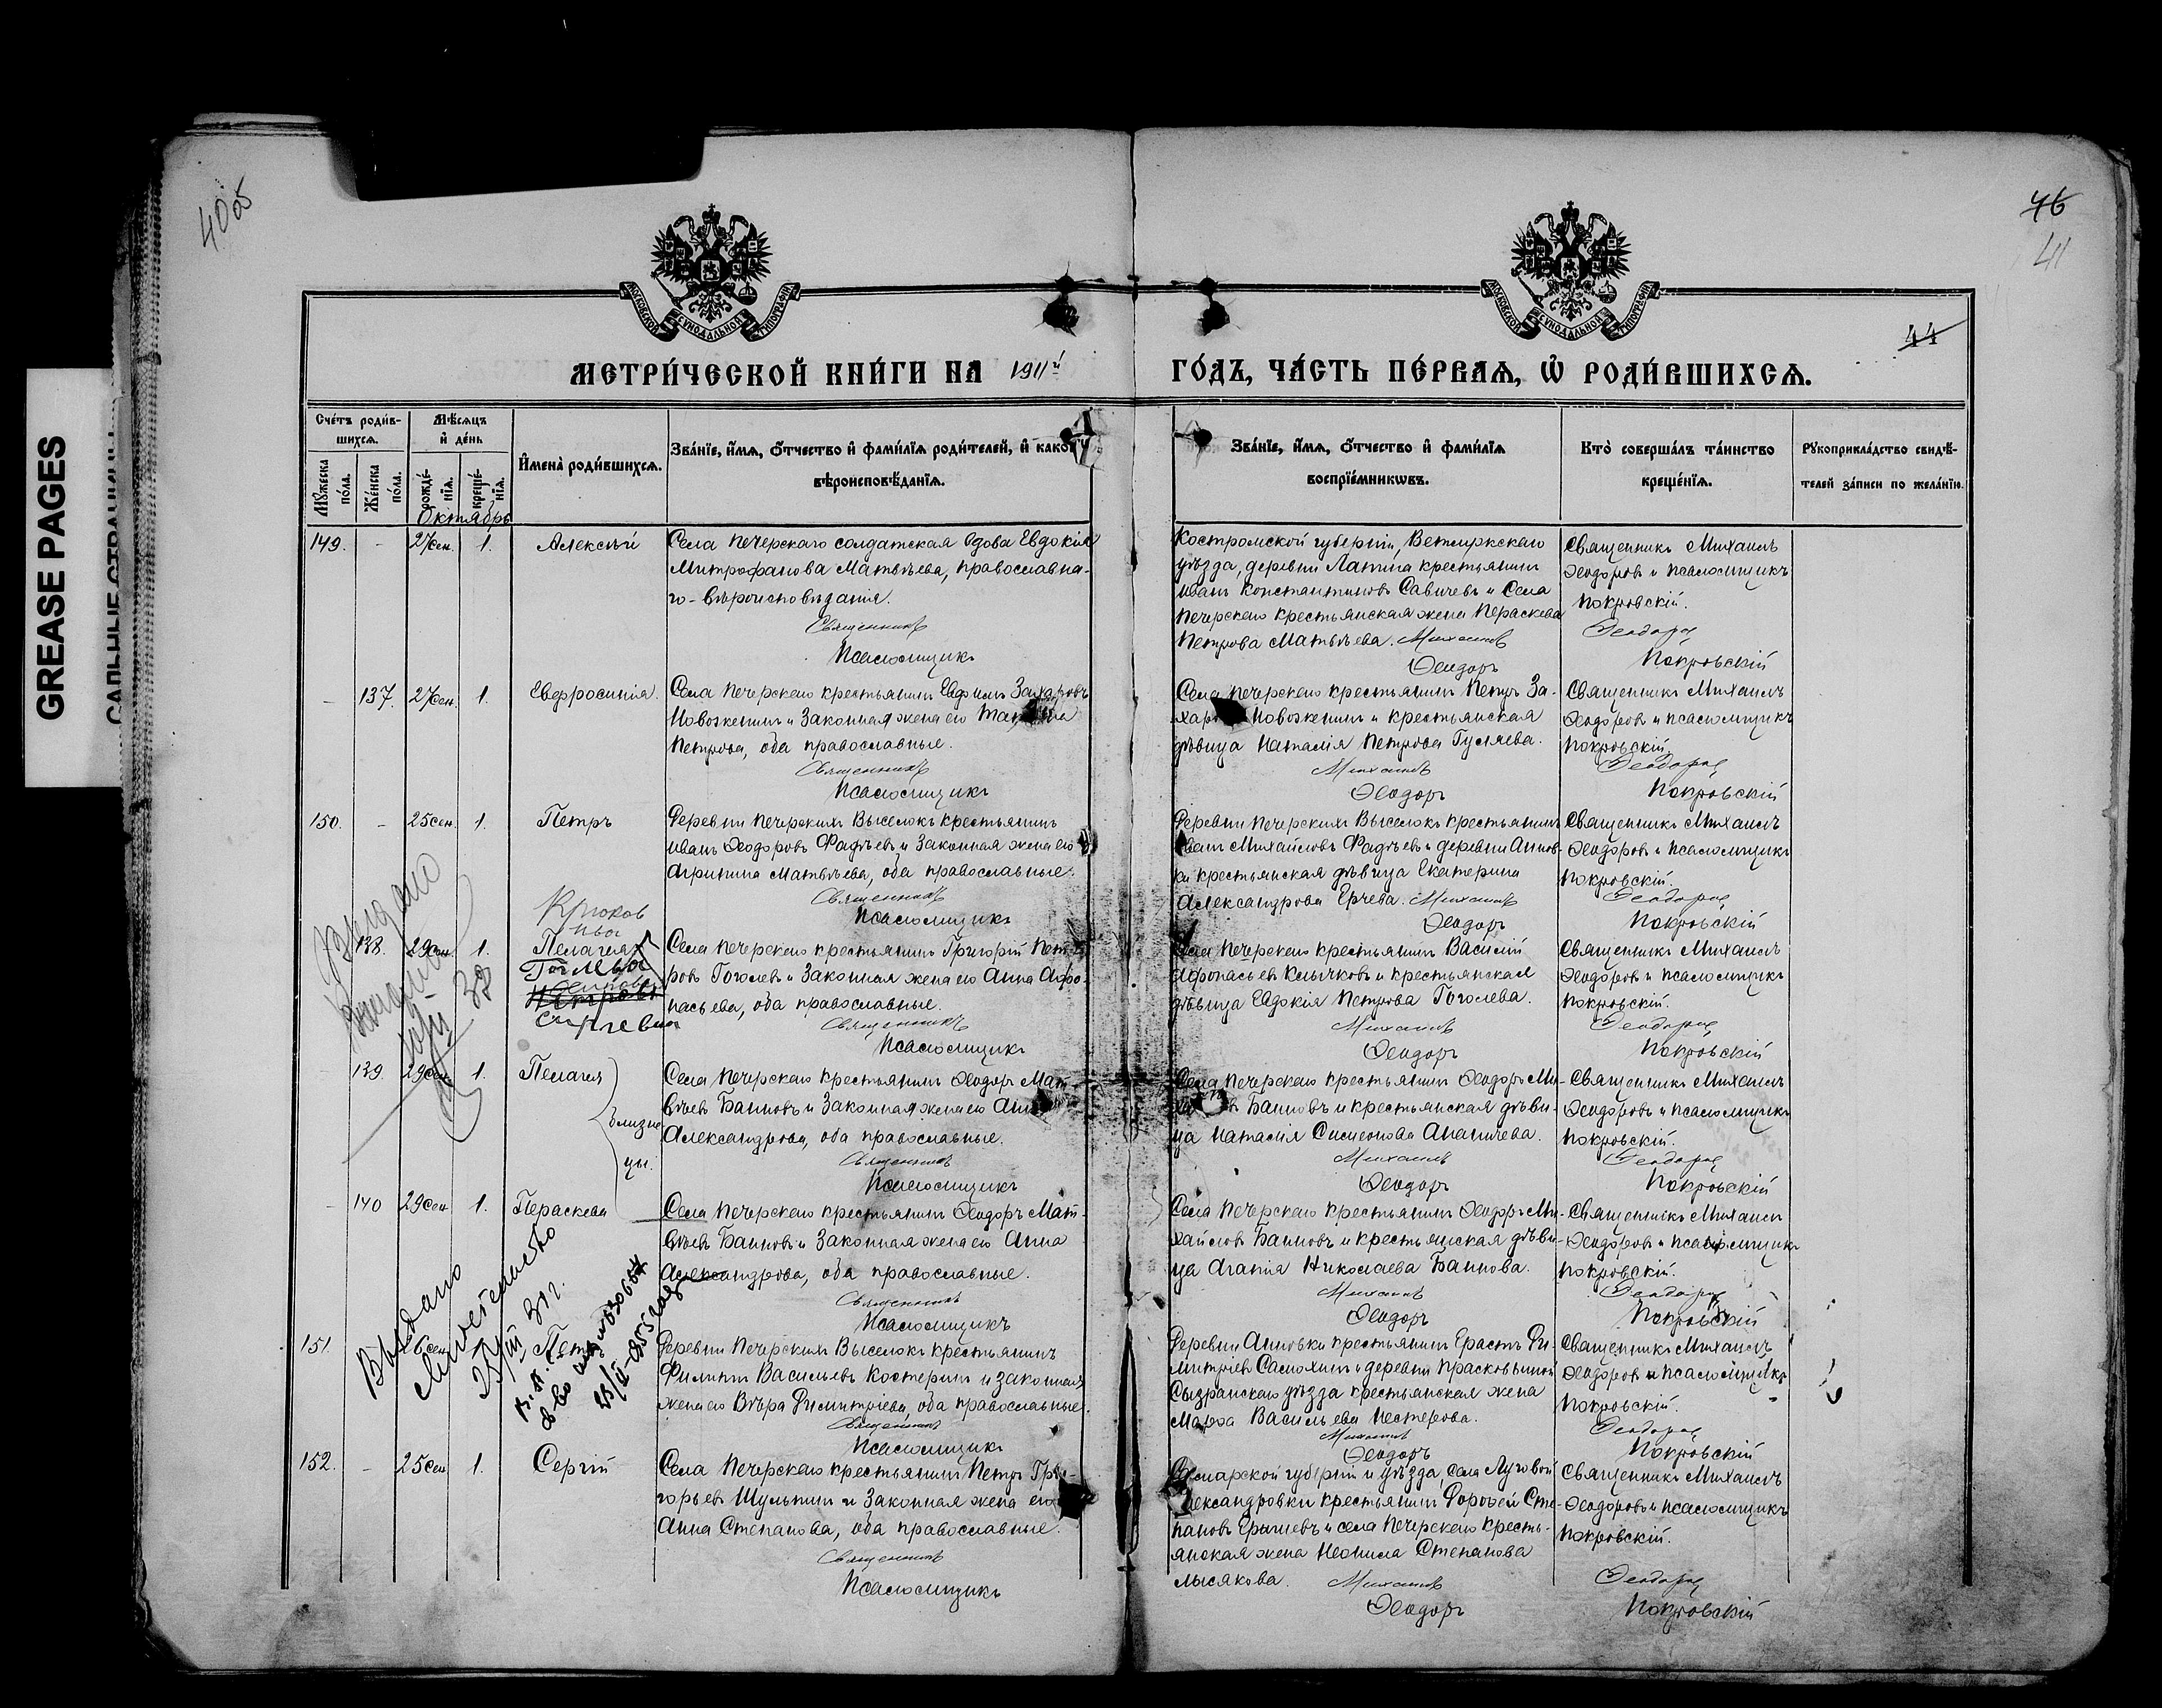 GREASE PAGES
40об
46
41
44
МОСКОВСКОЙ СУНОДАЛЬНОЙ ТИПОГРАФІИ
МОСКОВСКОЙ СУНОДАЛЬНОЙ ТИПОГРАФІИ
МЕТРИ́ЧЕСКОЙ КНИ́ГИ НА 1911й ГО́ДЪ, ЧА́СТЬ ПЕ́РВАѦ, Ѽ РОДИ́ВШИХСѦ.
Сче́тъ роди́в-
шихся.
Мѣ́сяцъ
и҆ де́нь
Мꙋ́жеска по́ла.
Же́нска по́ла.
рожде́-
нїя.
креще́-
нїя.
И҆мена̀ роди́вшихся.
Зва́нїе, и҆́мя, ѻ҆́тчество и҆ фами́лїя роди́телей, и҆ како́
вѣроисповѣ́данїя.
Зва́нїе, и҆́мя, ѻ҆́тчество и҆ фами́лїя
воспрїе́мникѡвъ.
Кто̀ соверша́лъ та́инство
креще́нїя.
Рꙋкоприкла́дство свидѣ́-
телей за́писи по жела́нїю.
Октябрь
149. - 27сен. 1. Алексѣй
Села Печерскаго солдатская вдова Евдокія
Митрофанова Матвѣева, православна-
го- вѣроисповѣданія.
Священникъ
Псаломщикъ
Костромской губерніи, Ветлужскаго
уѣзда, деревни Лапина крестьянинъ
Иванъ Константиновъ Савичевъ и Села
Печерскаго крестьянская жена Пераскева
Петрова Матвѣева. Михаилъ
Ѳеодоръ
Священникъ Михаилъ
Ѳеодоровъ и псаломщикъ
Покровскій.
Ѳеодоровъ
Покровскій
- 137. 27сен. 1. Евфросинія.
Села Печерскаго крестьянинъ Евфимъ Захаровъ
Новоженинъ и Законная жена его
Петрова, оба православные.
Священникъ
Псаломщикъ
Села Печерскаго крестьянинъ Петръ За-
Новоженинъ и крестьянская
дѣвица Наталія Петрова Гуляева.
Михаилъ
Ѳеодоръ
Священникъ Михаилъ
Ѳеодоровъ и псаломщикъ
Покровскій.
Ѳеодоровъ
Покровскій
150. - 25сен. 1. Петръ
Деревни Печерскихъ Выселокъ крестьянинъ
Иванъ Ѳеодоровъ Фадѣевъ и Законная жена его
Агрипина Матвѣева, оба православные.
Священникъ
Псаломщикъ
Деревни Печерскихъ Выселокъ крестьянинъ
Иванъ Михайловъ Фадѣевъ и деревни Аннов-
ки крестьянская дѣвица Екатерина
Александрова Ерчева. Михаилъ
Ѳеодоръ
Священникъ Михаилъ
Ѳеодоровъ и псаломщикъ
Покровскій.
Ѳеодоровъ
Покровскій
138. 29сен. 1. Пелагея
Села Печерскаго крестьянинъ Григорій Пет-
ровъ Гоголевъ и Законная жена его Анна Афо-
насьева, оба православные.
Священникъ
Псаломщикъ
Села Печерскаго крестьянинъ Василій
Афонасьевъ Клычковъ и крестьянская
дѣвица Евдокія Петрова Гоголева.
Михаилъ
Ѳеодоръ
Священникъ Михаилъ
Ѳеодоровъ и псаломщикъ
Покровскій.
Ѳеодоровъ
Покровскій
139. 29сен. 1. Пелагея
близне
цы.
Села Печерскаго крестьянинъ Ѳеодоръ Мат-
вѣевъ Банновъ и Законная жена его
Александрова, оба православные.
Священникъ
Псаломщикъ
Села Печерскаго крестьянинъ Ѳеодоръ Ми-
Банновъ и крестьянская дѣви-
ца Наталія Симеонова Ананичева.
Михаилъ
Ѳеодоръ
Священникъ Михаилъ
Ѳеодоровъ и псаломщикъ
Покровскій.
Ѳеодоровъ
Покровскій
- 140 29сен 1. Пераскева
Села Печерскаго крестьянинъ Ѳеодоръ Мат-
вѣевъ Банновъ и Законная жена его Анна
Александрова, оба православные.
Священникъ
Псаломщикъ
Села Печерскаго крестьянинъ Ѳеодоръ Ми-
хайловъ Банновъ и крестьянская дѣви-
ца Агапія Николаева Баннова.
Михаилъ
Ѳеодоръ
Священникъ Михаилъ
Ѳеодоровъ и псаломщикъ
Покровскій.
Ѳеодоровъ
Покровскій
Выдано
151. 26сен
Деревни Печерскихъ Выселокъ крестьянинъ
Филиппъ Васильевъ Костеринъ и законная
жена его Вѣра Димитріева, оба православные.
Священникъ
Псаломщикъ
Деревни Анновки крестьянинъ Ерастъ Ди-
митріевъ Самохинъ и деревни Прасковьиной
Сызранскаго уѣзда крестьянская жена
Марѳа Васильева Нестерова.
Михаилъ
Ѳеодоръ
Священникъ Михаилъ
Ѳеодоровъ и псаломщикъ
Покровскій.
Ѳеодоровъ
Покровскій
152. - 25сен 1. Сергій
Села Печерскаго крестьянинъ Петръ Гри-
горьевъ Шульпинъ и Законная жена его
Анна Степанова, оба православные.
Священникъ
Псаломщикъ
Самарской губерніи и уѣзда, села Луговой
Александровки крестьянинъ Дороѳей Сте-
пановъ Ерышевъ и села Печерскаго кресть-
янская жена Неонила Степанова
Лысякова. Михаилъ
Ѳеодоръ
Священникъ Михаилъ
Ѳеодоровъ и псаломщикъ
Покровскій.
Ѳеодоровъ
Покровскій